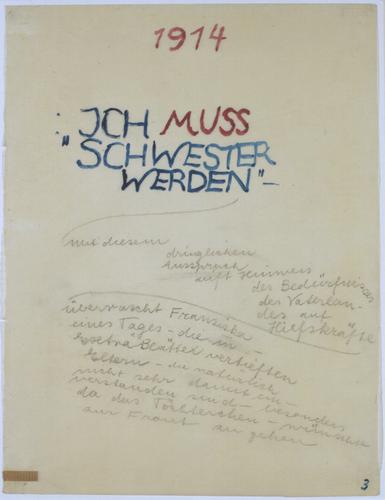 1914
: JCH MUSS
"SCHWESTER
WERDEN"–
mit diesem
dringlichen
Ausspruch
auft Hinweis
der Bedürfnisses
des Vaterlan-
des auf
Hilfskräfte
überrascht Franziska
eines Tages – die in
Extra Blätter vertieften
Eltern – die natürlich
nicht sehr damit ein-
verstanden sind – besonders
da das Töchterchen – wünscht
zur Front zu gehen
3